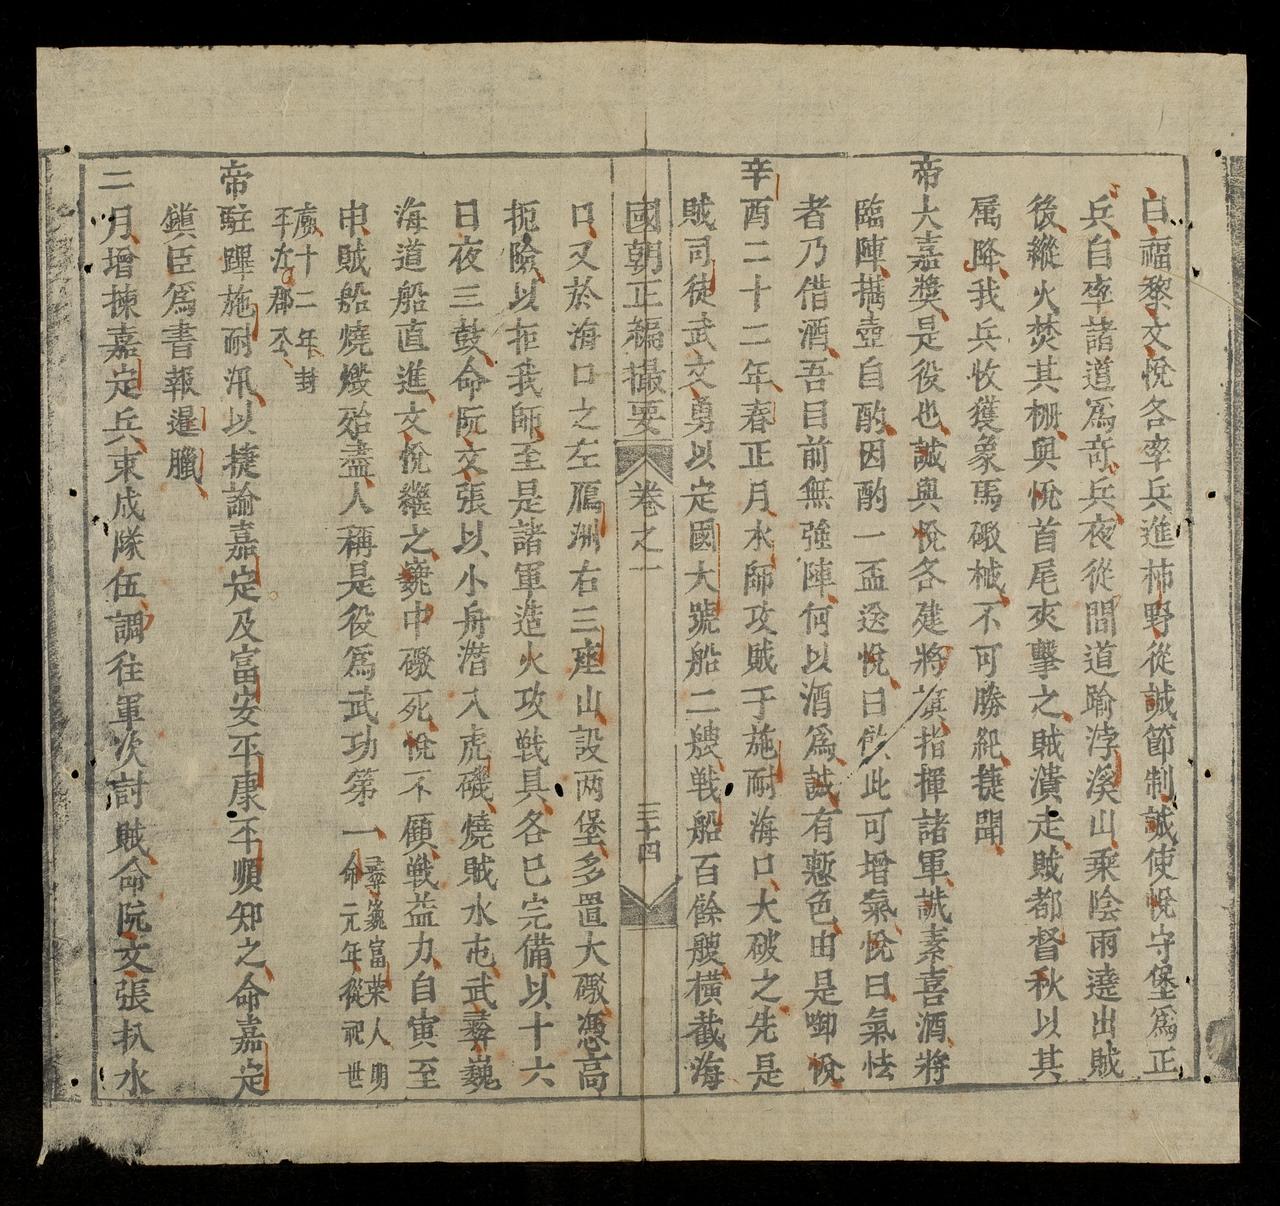 白福黎文悅各率兵進柿野從誠節制誠使悅守堡爲正
兵自率諸道爲奇兵夜從間道踰浡溪山乘陰雨遶出賊
後縱火焚其柵與悅首尾夾擊之賊潰走賊都督秋以其
属降我兵收獲象馬礮械不可勝紀捷聞
帝大嘉獎是役也誠與悅各建將旗指揮諸軍誠素喜酒將
臨陣攜壺自酌因酌一盃送悅曰飲此可增氣悅曰氣怯
者乃借酒吾目前無強陣何以酒爲誠有慙色由是啣悅
辛酉二十二年春正月水師攻賊于施耐海口大破之先是
賊司徒武文勇以定國大號船二艘戦船百餘艘橫截海
國朝正編撮要 卷之一 三十四
口又於海口之左鴈洲右三座山設两堡多置大礮憑高
扼險以拒我師至是諸軍造火攻戦具各已完備以十六
日夜三鼓命阮文張以小舟潜入虎磯燒賊水屯武彞巍
海道船直進文悅繼之巍中礮死悅不顧戦益力自寅至
申賊船燒燬殆盡人稱是役爲武功第一彞巍富荣人明命元年從祀世
廟十二年封平江郡公
帝駐蹕施耐汛以捷諭嘉定及富安平康平順知之命嘉定
鎭臣爲書報暹臘
二月增揀嘉定兵束成隊伍調往軍次討賊命阮文張扒水